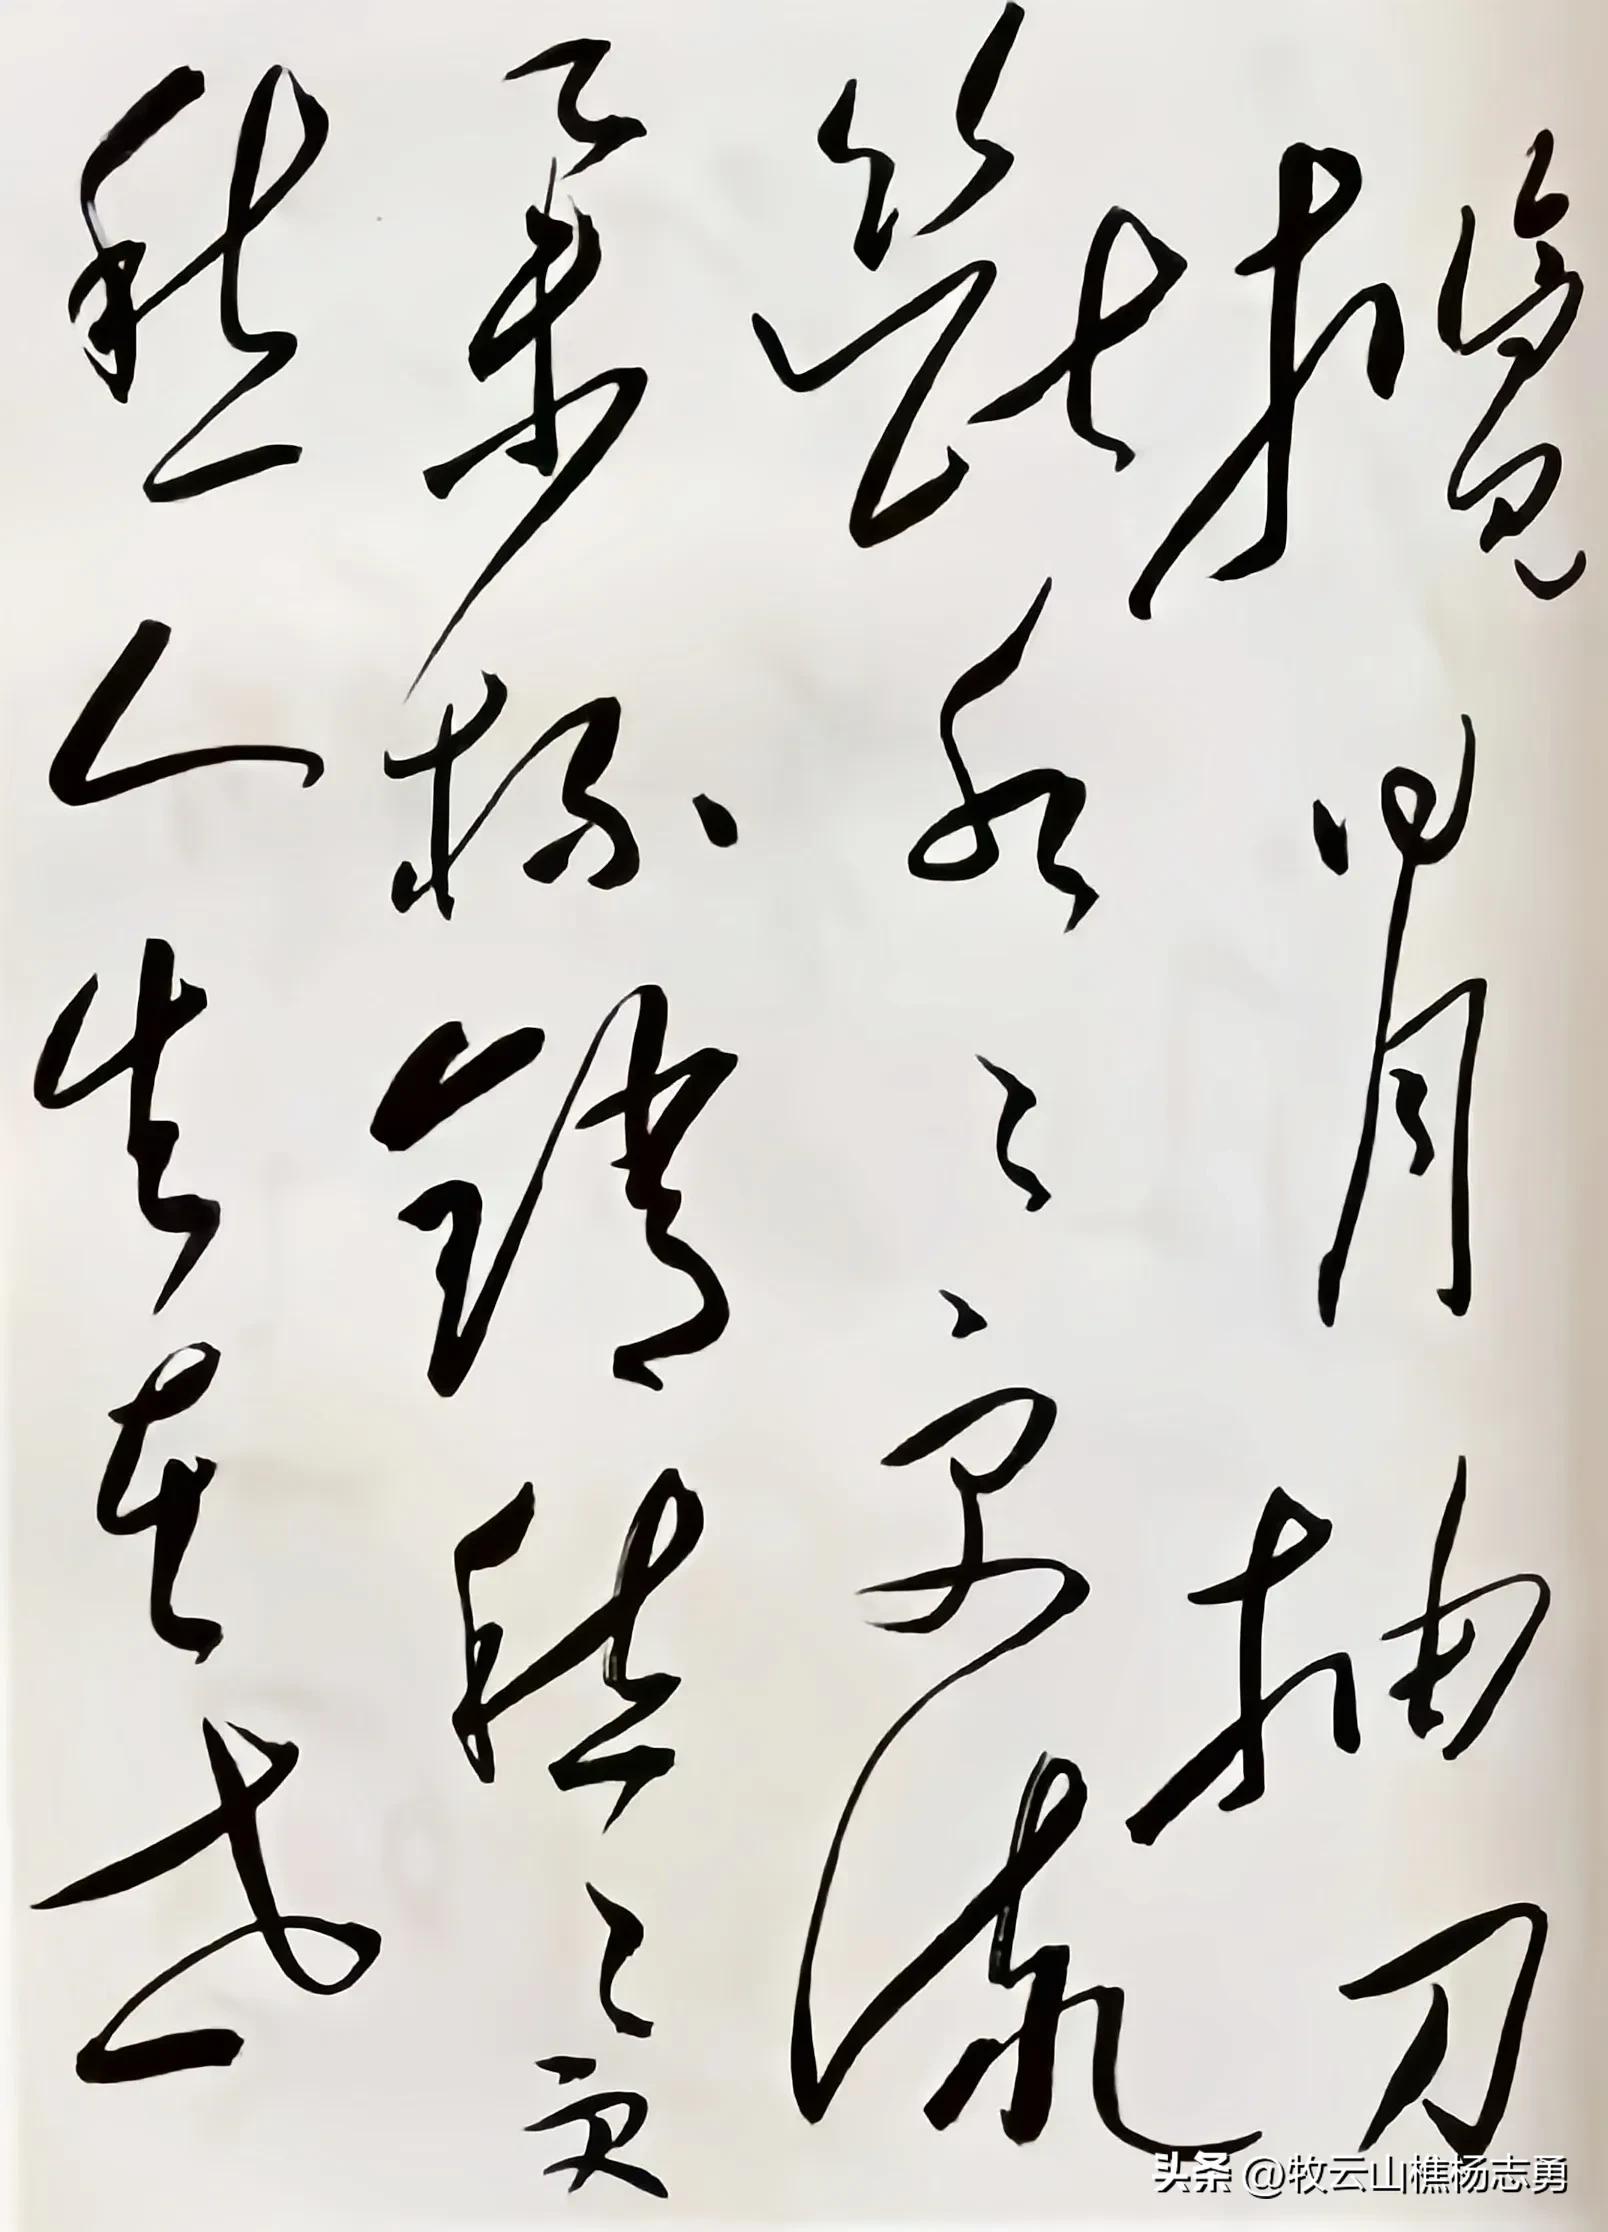 览明月抽刀
断水水更流
举杯销愁愁更
愁人生在世
头条 @牧云山樵杨志勇